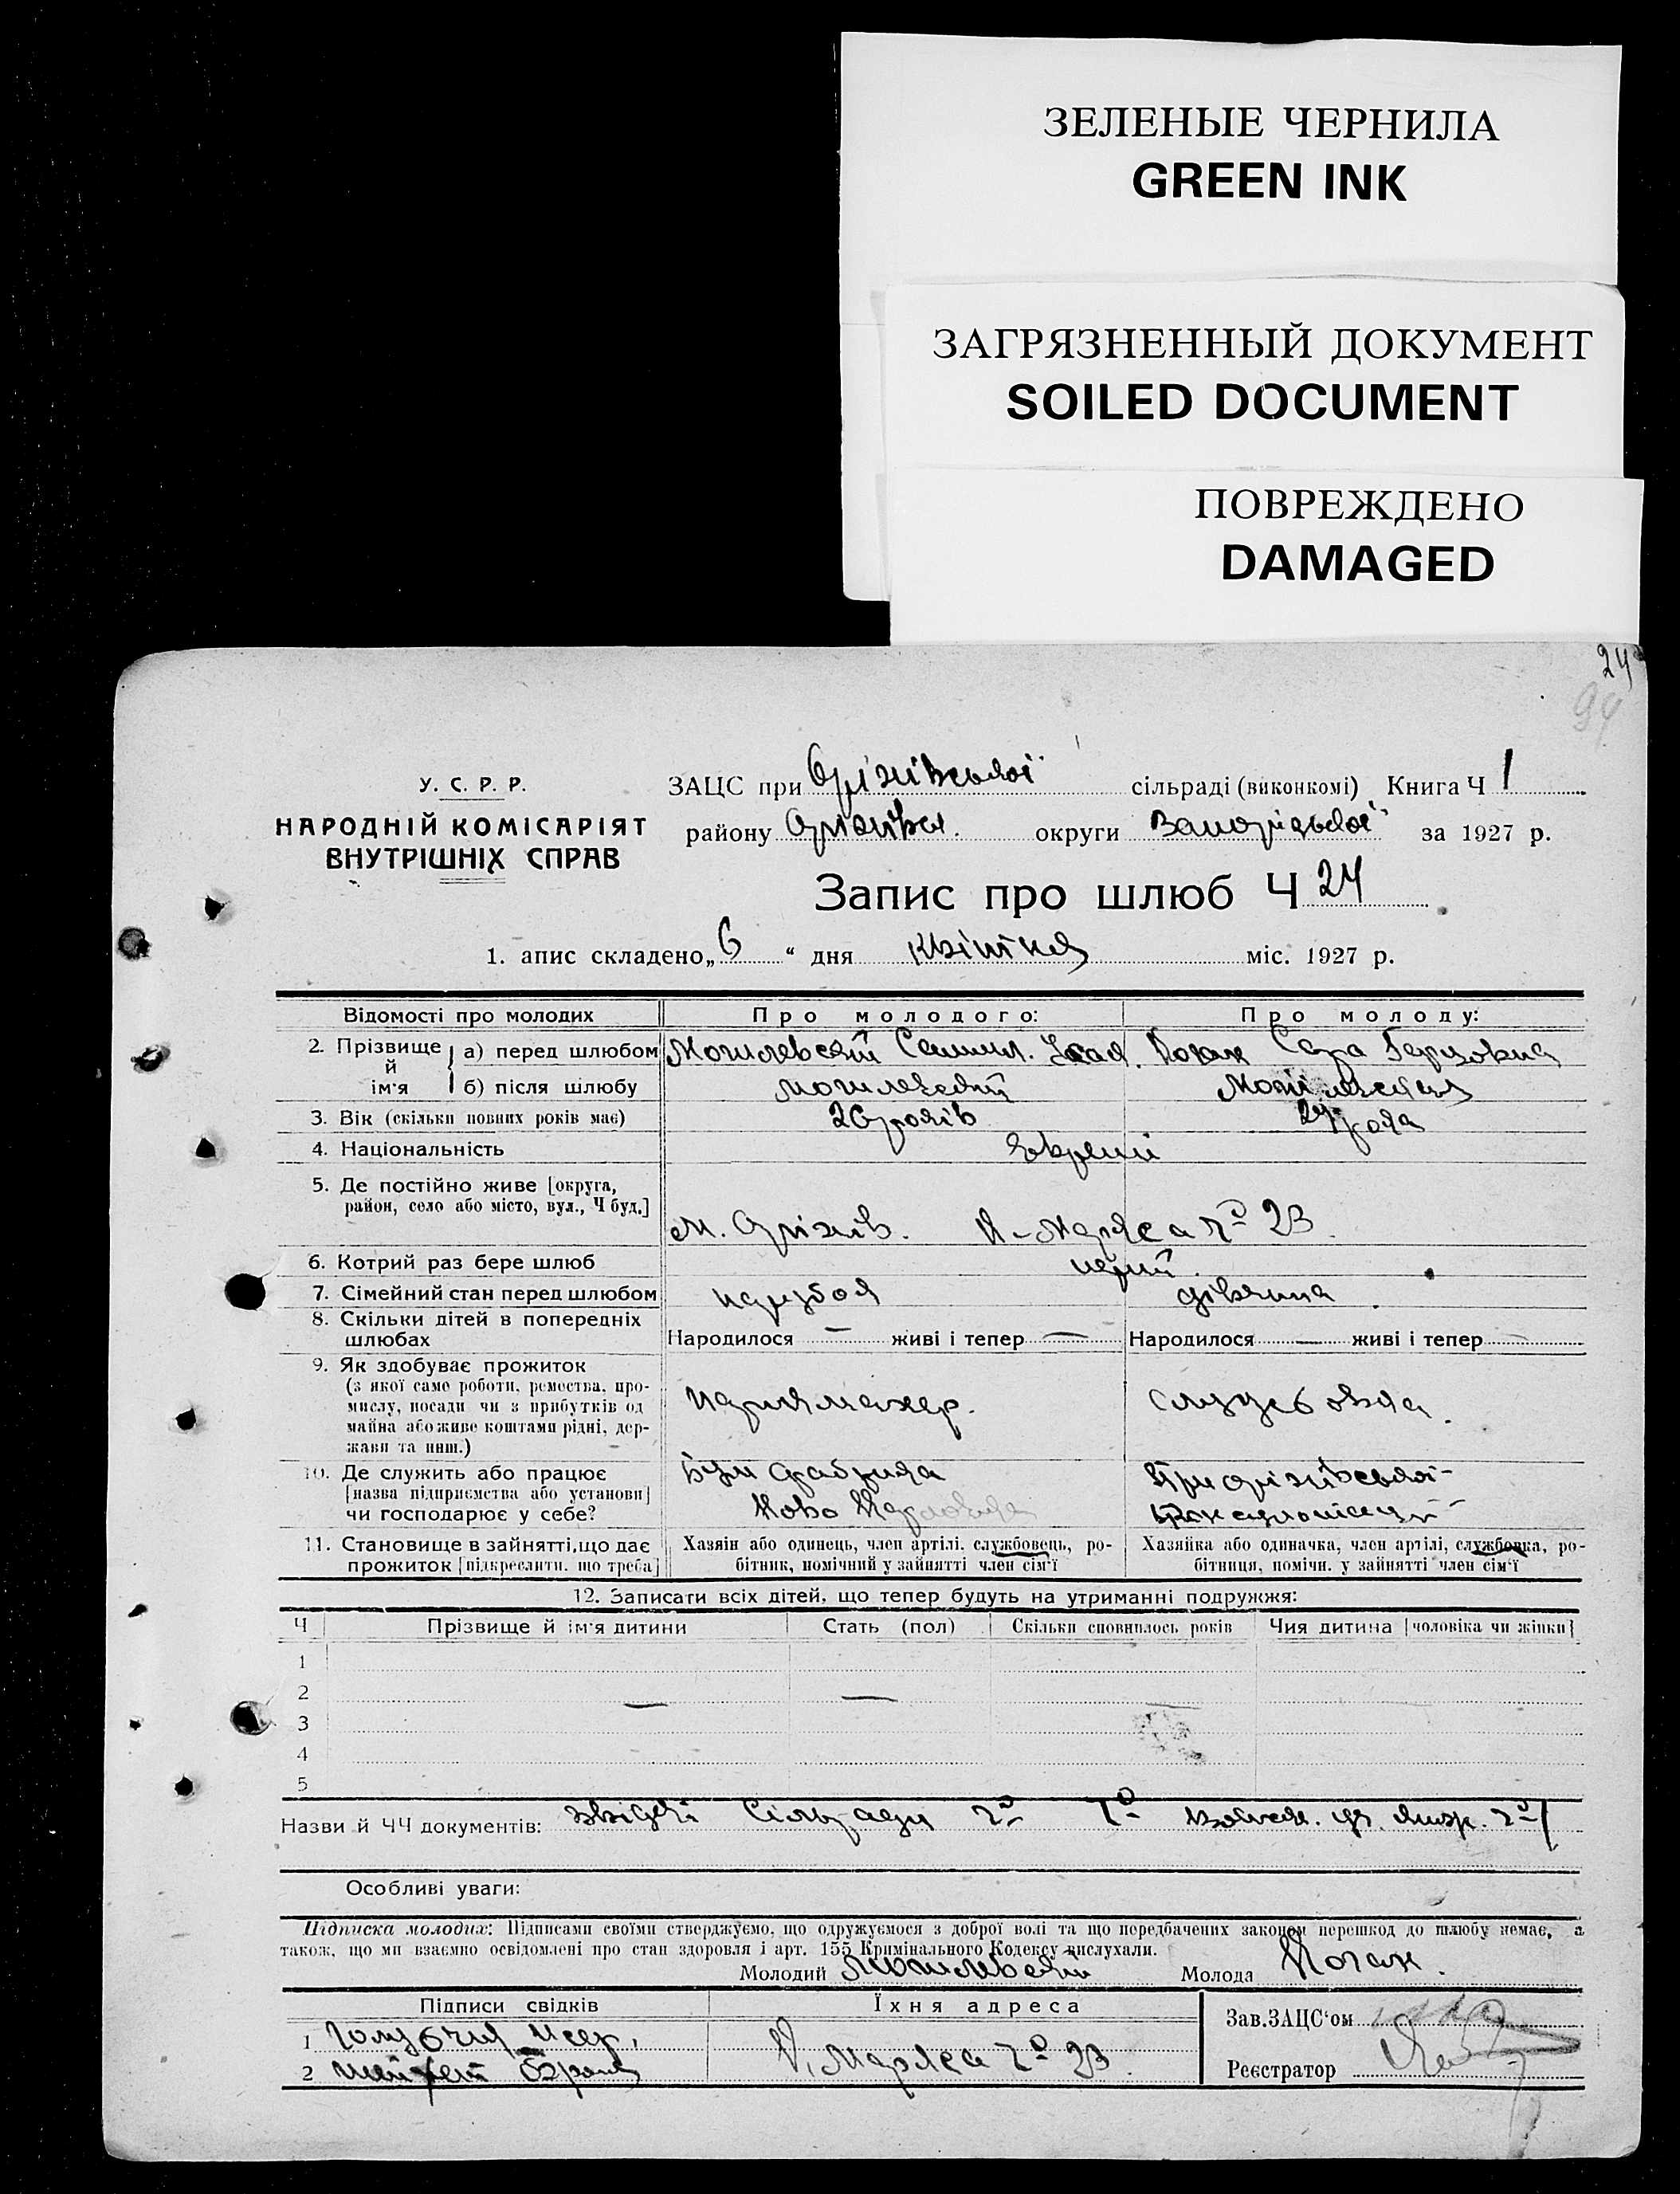 ЗЕЛЕНЫЕ ЧЕРНИЛА
GREEN INK
ЗАГРЯЗНЕННЫЙ ДОКУМЕНТ
SOILED DOCUMENT
ПОВРЕЖДЕНО
DAMAGED
24
94
У. С. Р. Р.
НАРОДНІЙ КОМІСАРІЯТ
ВНУТРІШНІХ СПРАВ
ЗАЦС при Оріхівської сільраді (виконкомі) Книга Ч 1
району округи Запорізької за 1927 р.
Запис про шлюб Ч 24
1. апис складено „ 6 “ дня квітня міс. 1927 р.
Відомості про молодих Про молодого: Про молоду:
2. Прізвище й ім'я а) перед шлюбом Могилевский Коган Сара
б) після шлюбу Могилевский Могілевская
3. Вік (скільки повних років має) 26 років 24 рока
4. Національність Евреии
5. Де постійно живе [округа,
район, село або місто, вул., Ч буд.] м. Оріхів. К-Маркса № 23
6. Котрий раз бере шлюб перший
7. Сімейний стан перед шлюбом парубок дівчина
8. Скільки дітей в попередніх
шлюбах Народилося — живі і тепер — Народилося — живі і тепер —
9. Як здобуває прожиток
(з якої саме роботи, ремества, про-
мислу, посади чи з прибутків од
майна або живе коштами рідні, дер-
жави та инш.)
парикмахер. службовка.
10. Де служить або працює
[назва підприємства або установи]
чи господарює у себе?
фабрика
При оріхівської
11. Становище в зайнятті, що дає
прожиток [підкреслити, що треба]
Хазяїн або одинець, член артілі, службовець, ро-
бітник, помічний у зайнятті член сім'ї
Хазяйка або одиначка, член артілі, службовка, ро-
бітниця, помічн. у зайнятті член сім'ї
12. Записати всіх дітей, що тепер будуть на утриманні подружжя:
Ч Прізвище й ім'я дитини Стать (пол) Скільки сповнилось років Чия дитина [чоловіка чи жінки]
1
2 — — —
3
4
5
Назви й ЧЧ документів: Сільради
Особливі уваги:
Підписка молодих: Підписами своїми стверджуємо, що одружуємося з доброї волі та що передбачених законом перешкод до шлюбу немає, а
також, що ми взаємно освідомлені про стан здоровля і арт. 155 Кримінального Кодексу вислухали.
Молодий Могилевский Молода Коган.
Підписи свідків Їхня адреса Зав. ЗАЦС'ом
1
2 К. Маркса № 23
Реєстратор